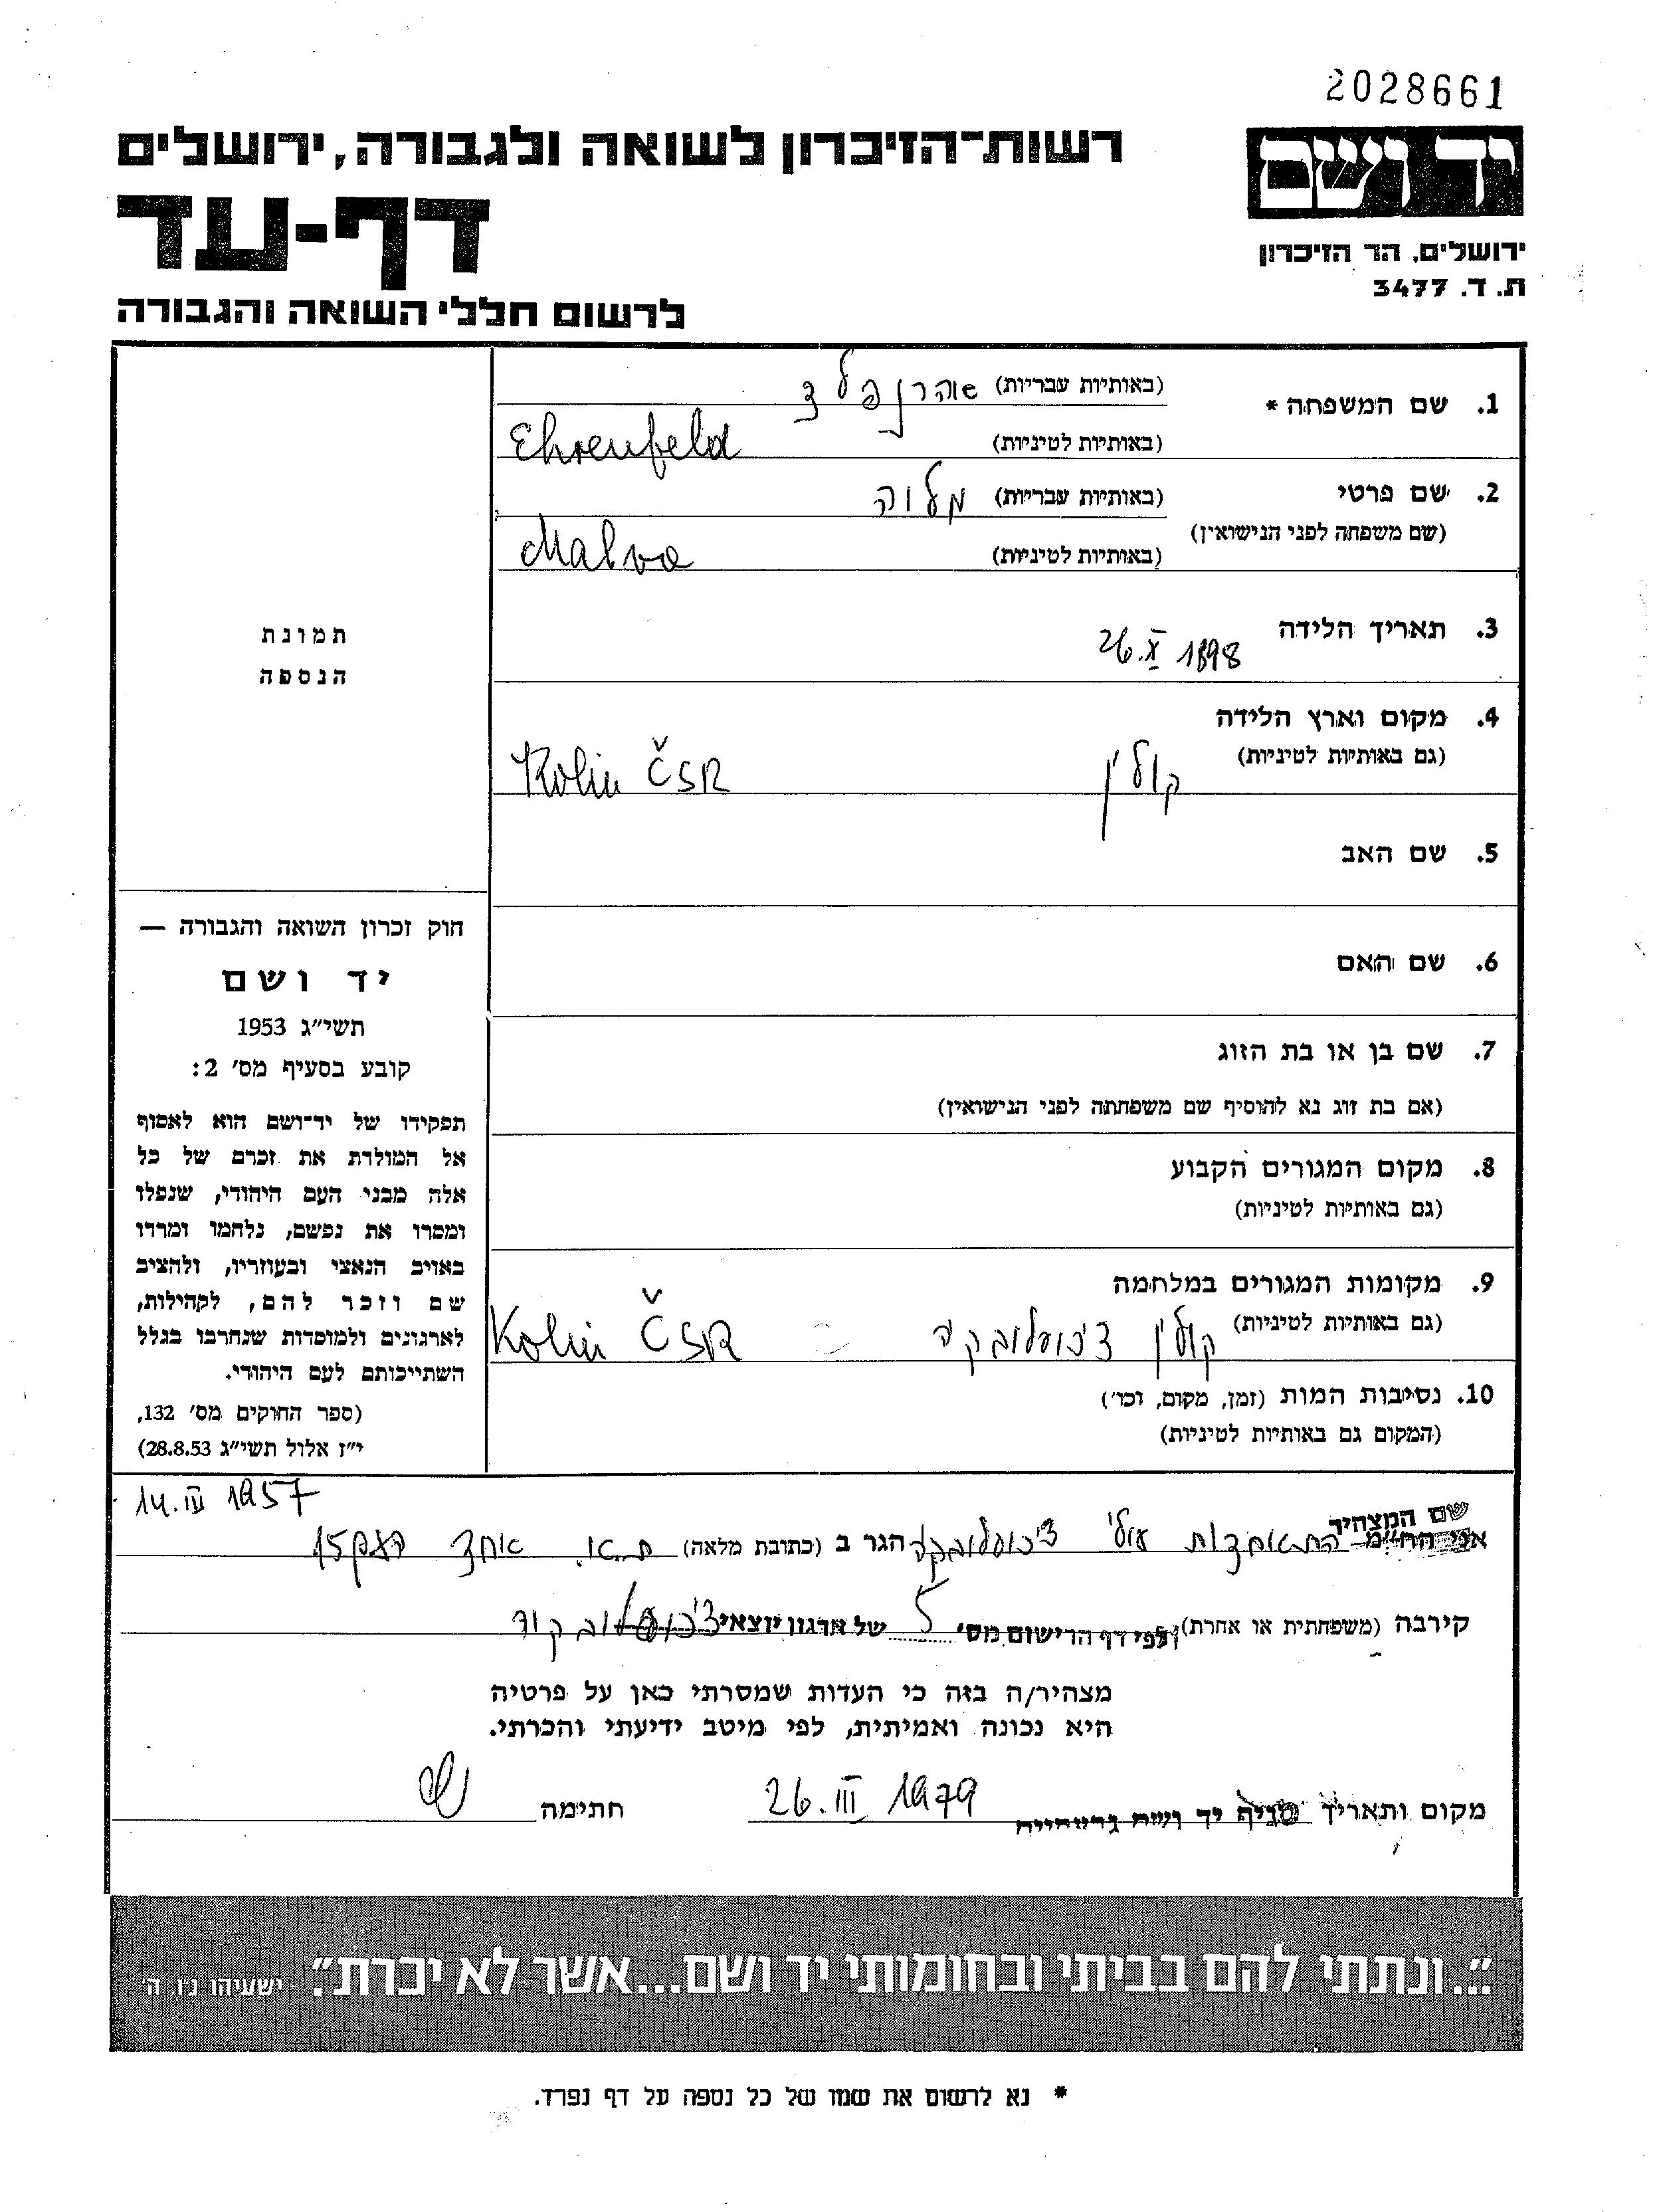 2028661
יד ושם
ירושלים, הר הזיכרון
ת. ד. 3477
רשות־הזיכרון לשואה ולגבורה, ירושלים
דף-עד
לרשום חללי השואה והגבורה
1. שם המשפחה *
(באותיות עבריות) אהרנפלד
(באותיות לטיניות) Ehrenfeld
2. שם פרטי
(שם משפחה לפני הנישואין)
(באותיות עבריות) מלוה
(באותיות לטיניות) Malva
3. תאריך הלידה 26.X 1898
4. מקום וארץ הלידה
(גם באותיות לטיניות) קולין Kolin ČSR
5. שם האב
6. שם האם
7. שם בן או בת הזוג
(אם בת זוג נא להוסיף שם משפחתה לפני הנישואין)
8. מקום המגורים הקבוע
(גם באותיות לטיניות)
9. מקומות המגורים במלחמה
(גם באותיות לטיניות) קולין צ'כוסלובקיה Kolin ČSR
10. נסיבות המות (זמן, מקום, וכו')
(המקום גם באותיות לטיניות)
תמונת
הנספה
חוק זכרון השואה והגבורה —
יד ושם
תשי״ג 1953
קובע בסעיף מס׳ 2:
תפקידו של יד־ושם הוא לאסוף
אל המולדת את זכרם של כל
אלה מבני העם היהודי, שנפלו
ומסרו את נפשם, נלחמו ומרדו
באויב הנאצי ובעוזריו, ולהציב
שם וזכר להם, לקהילות,
לארגונים ולמוסדות שנחרבו בגלל
השתייכותם לעם היהודי.
(ספר החוקים מס׳ 132,
י״ז אלול תשי״ג 28.8.53)
14.IV 1957
שם המצהיר
אני הח״מ התאחדות עולי צ'כוסלובקיה הגר ב (כתובת מלאה) ת.א. אחד העם 15
קירבה (משפחתית או אחרת) ולפי דף הרישום מס' 5 של ארגון יוצאי צ'כוסלובקיה
מצהיר/ה בזה כי העדות שמסרתי כאן על פרטיה
היא נכונה ואמיתית, לפי מיטב ידיעתי והכרתי.
מקום ותאריך סניף יד ושם 26.III 1979 חתימה
״...ונתתי להם בביתי ובחומותי יד ושם...אשר לא יכרת״. ישעיהו נ״ו, ה׳
* נא לרשום את שמו של כל נספה על דף נפרד.